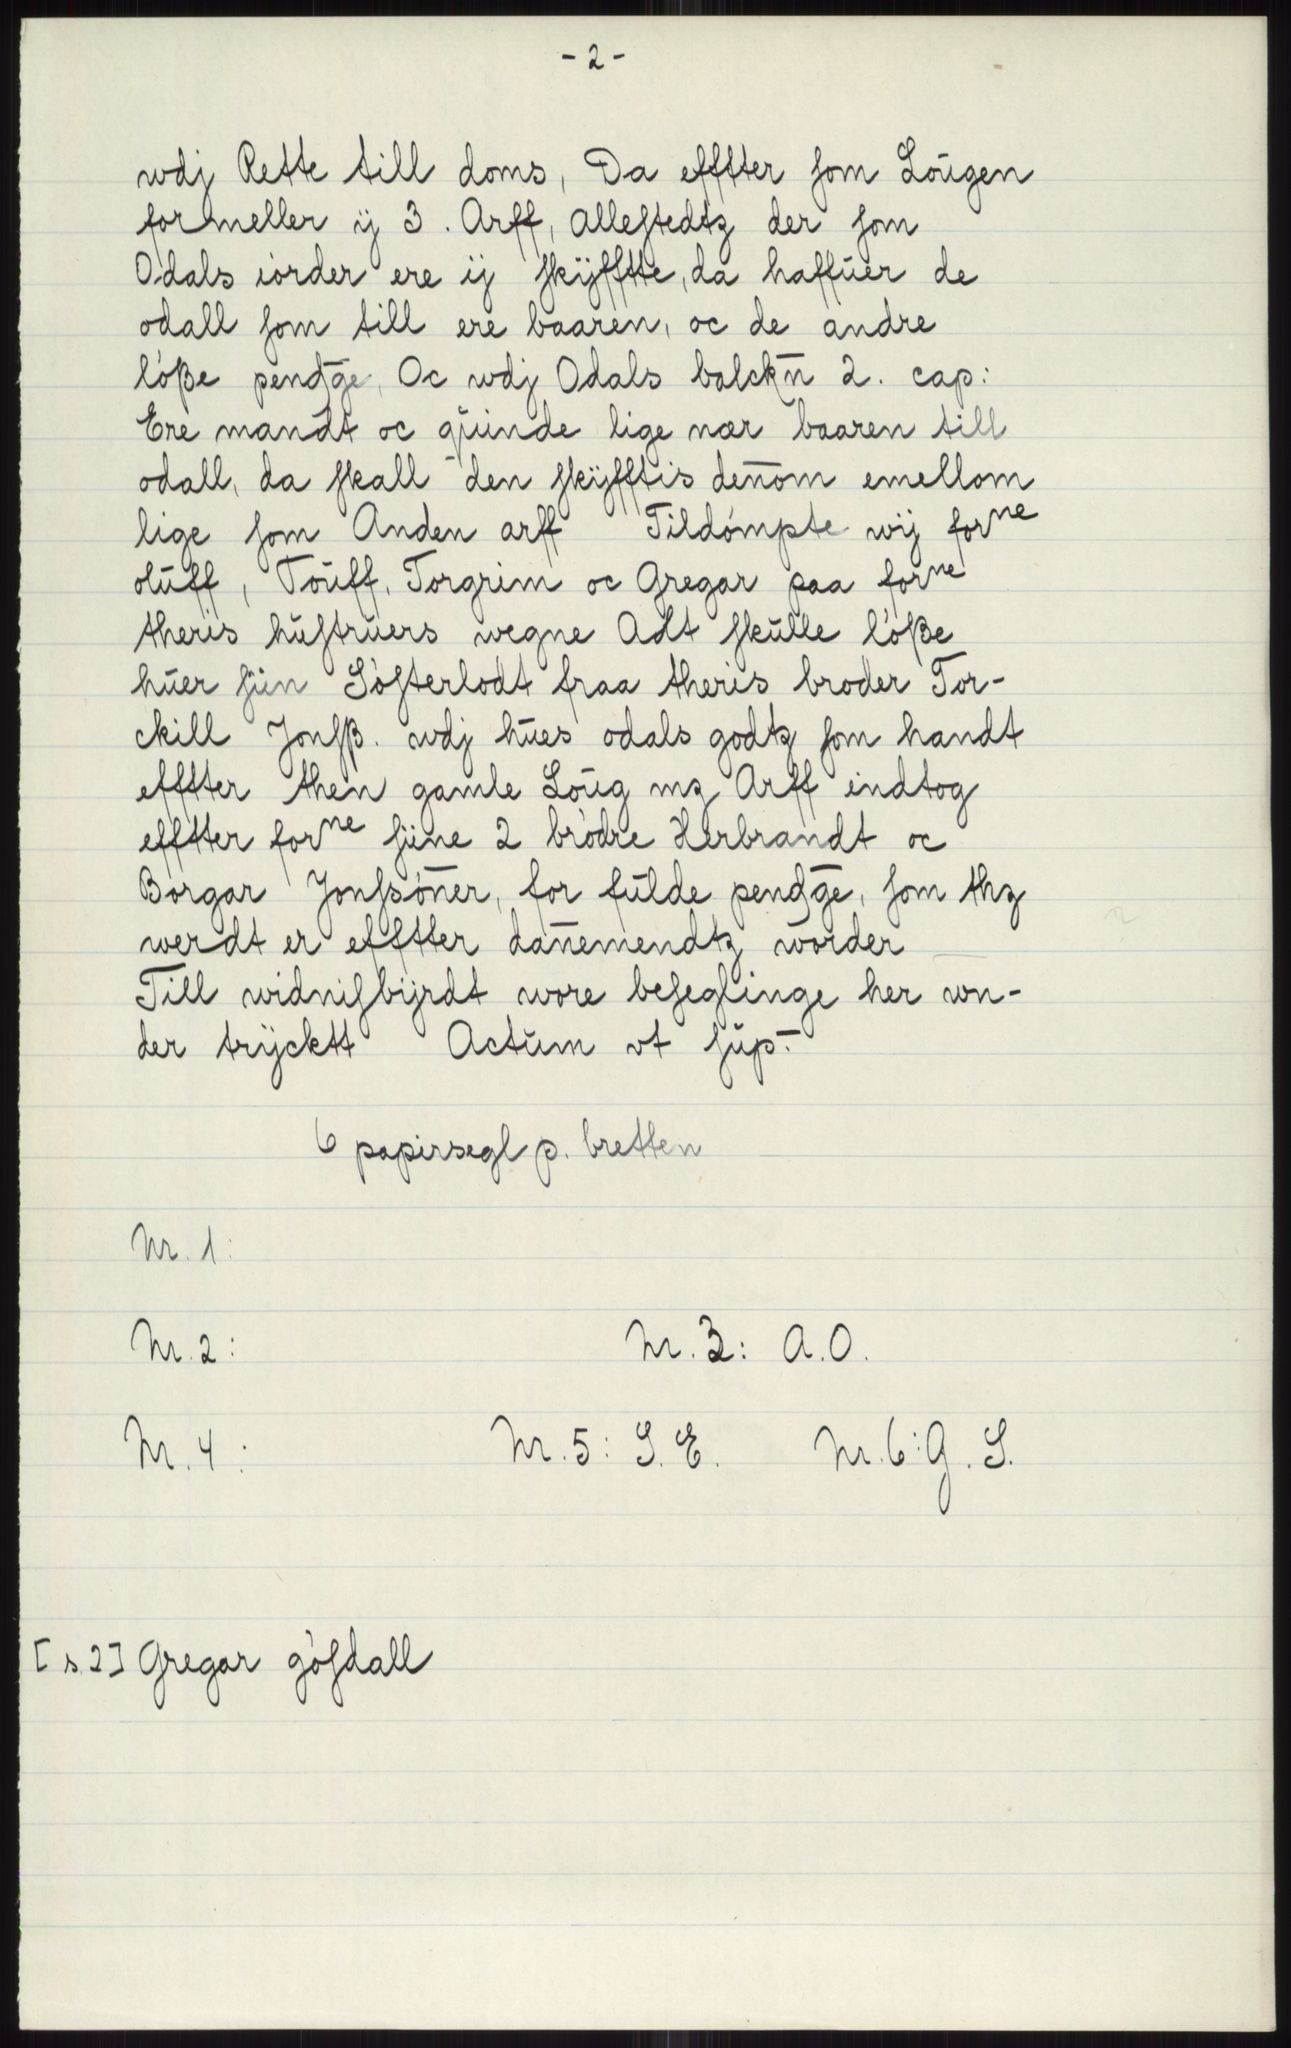 - 2 -
wdj Rette till doms, Da effter ſom Loŭgen
formeller ij 3. Arff, Alleſtedtz der ſom
Odals iorder ere ij ſkÿffte, da haffŭer de
odall ſom till ere baaren, oc de andre
lóße pendḡe, Oc wdj Odals balckn̄ 2. cap:
Ere mandt oc qŭinde lige nær baaren till
odall, da ſkall den ſkÿfftis den̄om emellom
lige ſom Anden arff Tildómpte wij forⁿᵉ
olŭff, Toŭff, Torgrim oc Gregar paa forⁿᵉ
theris hŭſtrŭers wegne Adt ſkŭlle lóße
hŭer ſiin Sóſterlodt fraa theris broder Tor-
ckill Jonſß. wdj hŭes odals godtz ſom handt
effter then gamle Loŭg mz Arff indtog
effter forⁿᵉ ſiine 2 bródre Herbrandt oc
Borgar Jonſsón̄er, for fŭlde pendḡe, ſom thz
werdt er effter dan̄emendtz worder
Till widniſbÿrdt wore beſeglinge her wn-
der trÿcktt Actŭm vt ſŭp:
6 papirsegl p. bretten
Nr. 1:
Nr. 2: Nr. 3: A.O.
Nr. 4: Nr. 5: S. E. Nr. 6: G. S.
[s. 2] Gregar góſdall